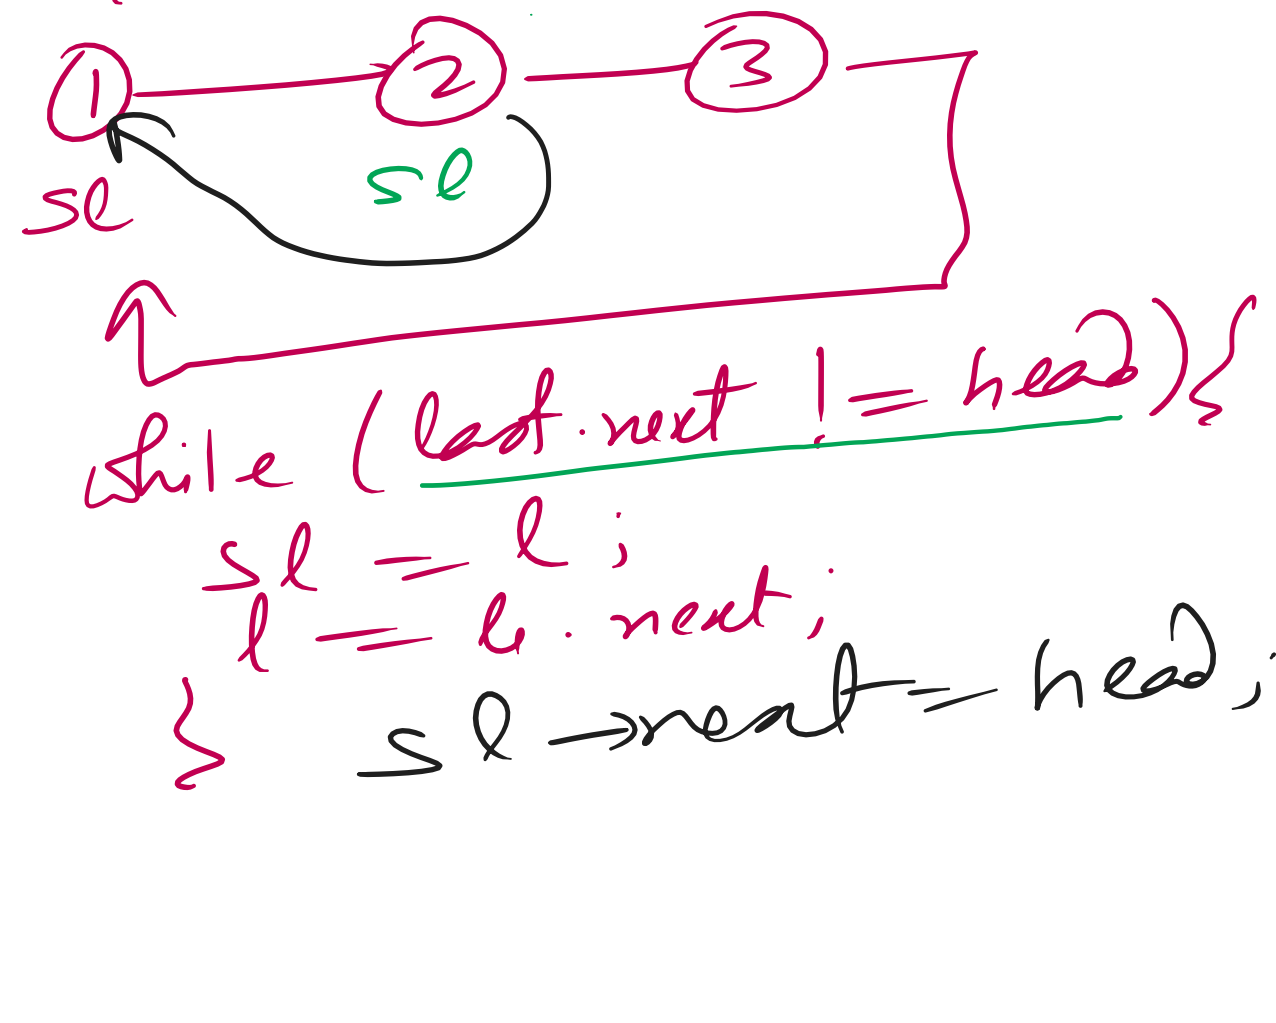 1 2 3
sl sl
while (last.next != head) {
sl = l ;
l = l. next ;
} sl → next = head ;